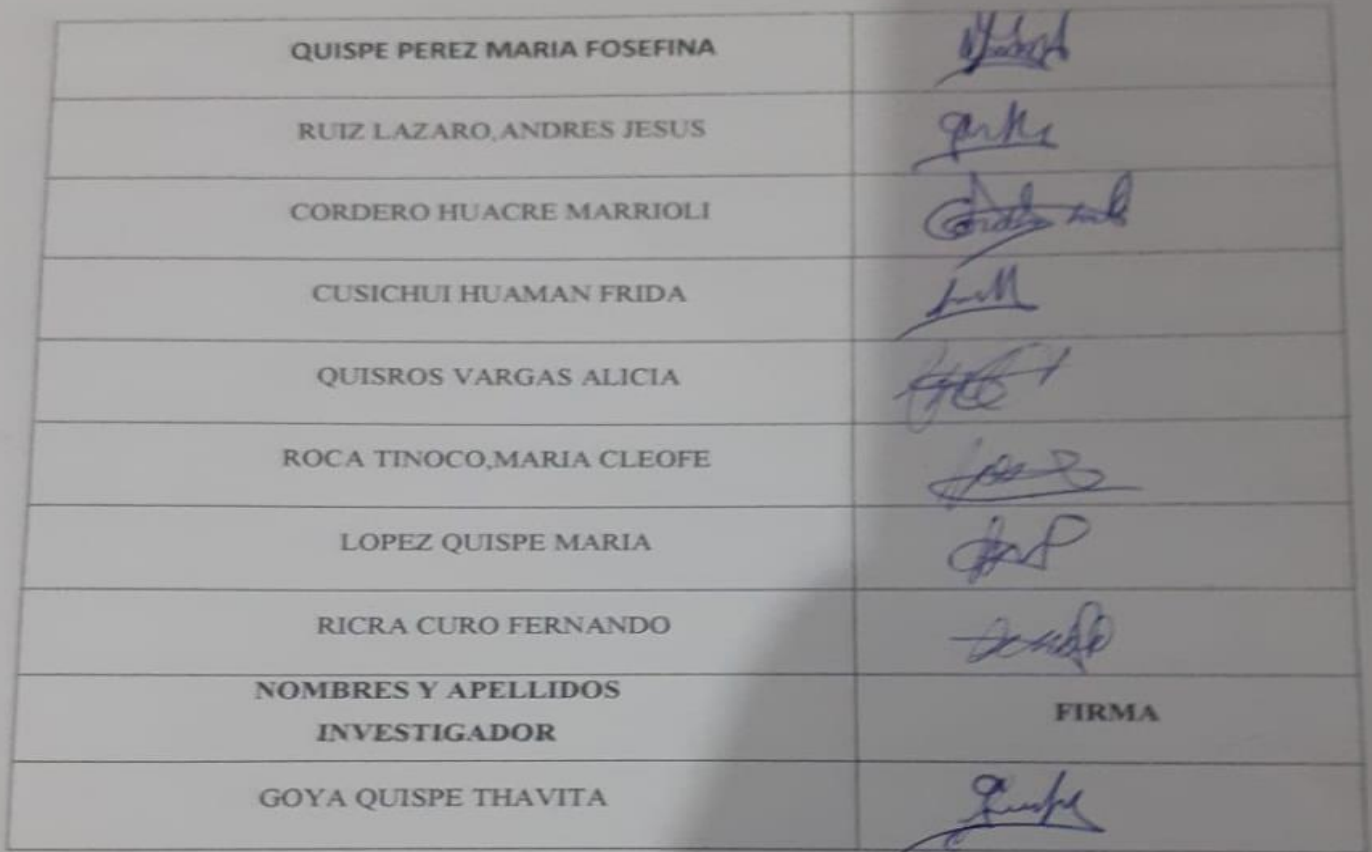 QUISPE PEREZ MARIA FOSEFINA
RUIZ LAZARO,ANDRES JESUS
CORDERO HUACRE MARRIOLI
CUSICHUI HUAMAN FRIDA
QUISROS VARGAS ALICIA
ROCA TINOCO,MARIA CLEOFE
LOPEZ QUISPE MARIA
RICRA CURO FERNANDO
NOMBRES Y APELLIDOS
INVESTIGADOR
FIRMA
GOYA QUISPE THAVITA